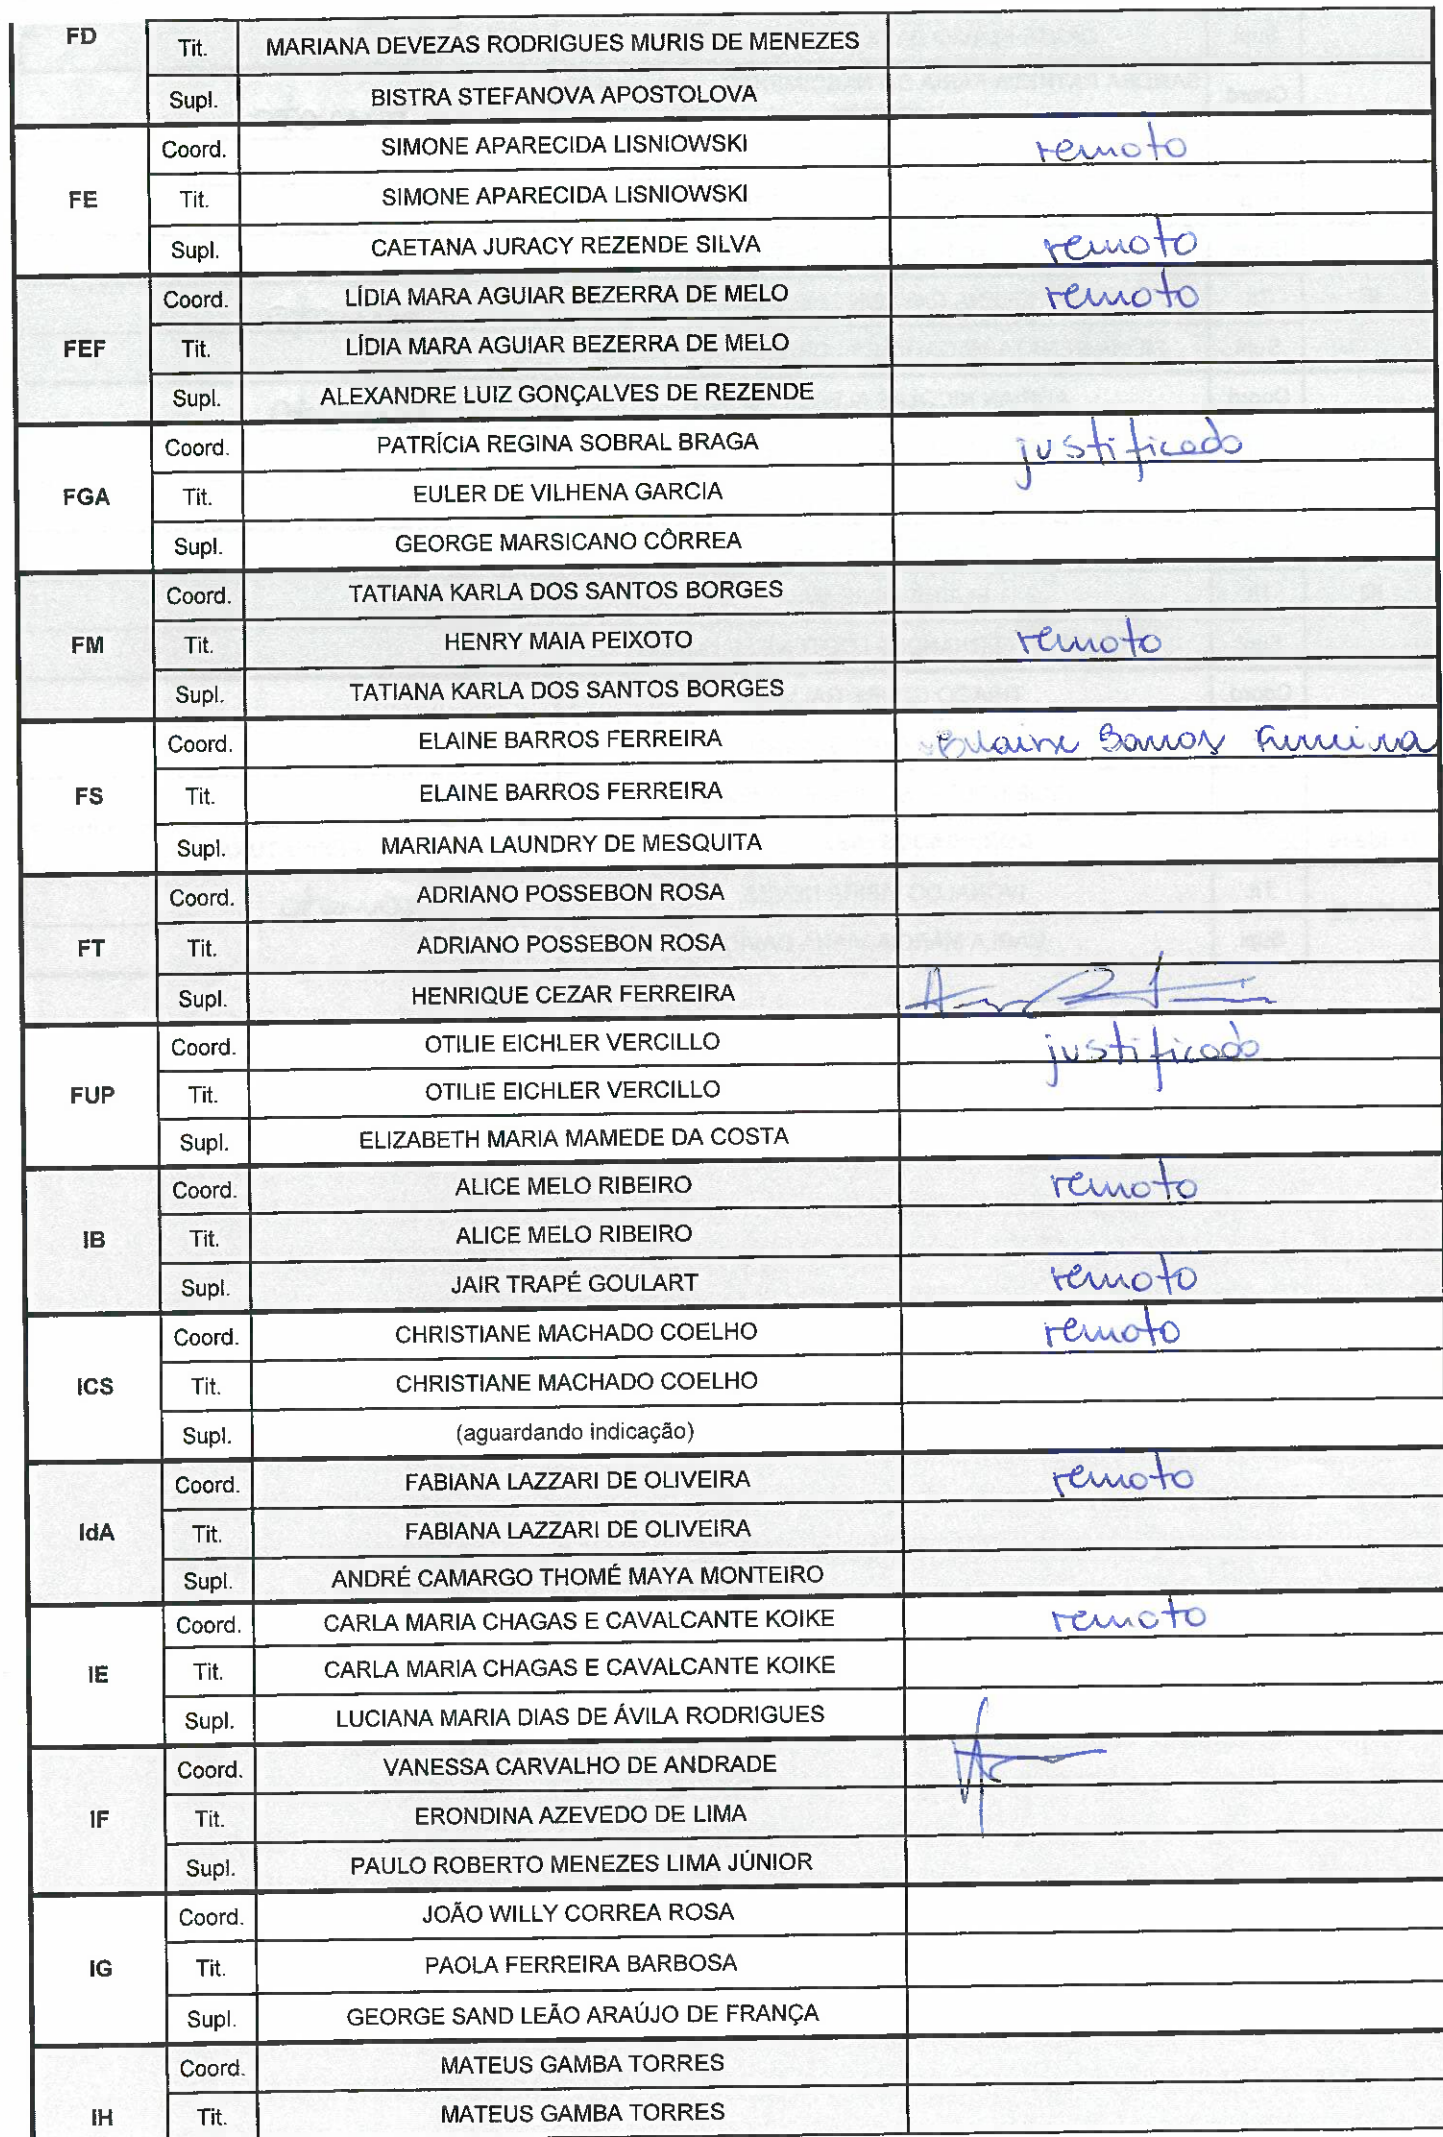 FD
Tit. MARIANA DEVEZAS RODRIGUES MURIS DE MENEZES
Supl. BISTRA STEFANOVA APOSTOLOVA
Coord. SIMONE APARECIDA LISNIOWSKI remoto
FE Tit. SIMONE APARECIDA LISNIOWSKI
Supl. CAETANA JURACY REZENDE SILVA remoto
Coord. LÍDIA MARA AGUIAR BEZERRA DE MELO remoto
FEF Tit. LÍDIA MARA AGUIAR BEZERRA DE MELO
Supl. ALEXANDRE LUIZ GONÇALVES DE REZENDE
Coord. PATRÍCIA REGINA SOBRAL BRAGA justificado
FGA Tit. EULER DE VILHENA GARCIA
Supl. GEORGE MARSICANO CÔRREA
Coord. TATIANA KARLA DOS SANTOS BORGES
FM Tit. HENRY MAIA PEIXOTO remoto
Supl. TATIANA KARLA DOS SANTOS BORGES
Coord. ELAINE BARROS FERREIRA Elaine Barros Ferreira
FS Tit. ELAINE BARROS FERREIRA
Supl. MARIANA LAUNDRY DE MESQUITA
Coord. ADRIANO POSSEBON ROSA
FT Tit. ADRIANO POSSEBON ROSA
Supl. HENRIQUE CEZAR FERREIRA
Coord. OTILIE EICHLER VERCILLO justificado
FUP Tit. OTILIE EICHLER VERCILLO
Supl. ELIZABETH MARIA MAMEDE DA COSTA
Coord. ALICE MELO RIBEIRO remoto
IB Tit. ALICE MELO RIBEIRO
Supl. JAIR TRAPÉ GOULART remoto
Coord. CHRISTIANE MACHADO COELHO remoto
ICS Tit. CHRISTIANE MACHADO COELHO
Supl. (aguardando indicação)
Coord. FABIANA LAZZARI DE OLIVEIRA remoto
IdA Tit. FABIANA LAZZARI DE OLIVEIRA
Supl. ANDRÉ CAMARGO THOMÉ MAYA MONTEIRO
Coord. CARLA MARIA CHAGAS E CAVALCANTE KOIKE remoto
IE Tit. CARLA MARIA CHAGAS E CAVALCANTE KOIKE
Supl. LUCIANA MARIA DIAS DE ÁVILA RODRIGUES
Coord. VANESSA CARVALHO DE ANDRADE
IF Tit. ERONDINA AZEVEDO DE LIMA
Supl. PAULO ROBERTO MENEZES LIMA JÚNIOR
Coord. JOÃO WILLY CORREA ROSA
IG Tit. PAOLA FERREIRA BARBOSA
Supl. GEORGE SAND LEÃO ARAÚJO DE FRANÇA
Coord. MATEUS GAMBA TORRES
IH Tit. MATEUS GAMBA TORRES